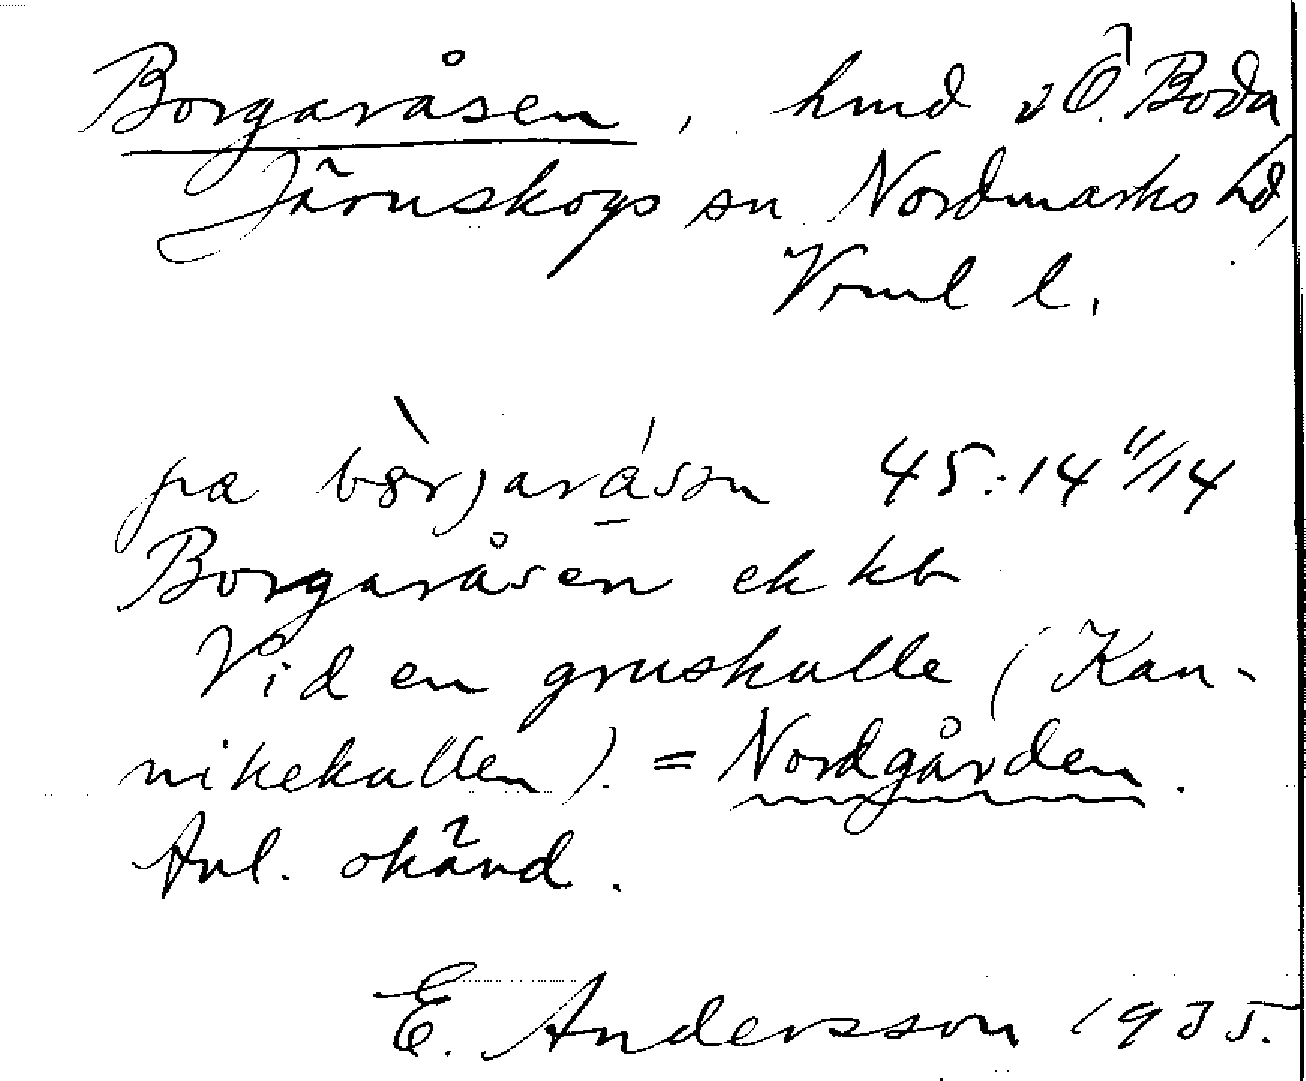 Borgaråsen, hmd v Ö. Boda
Järnskogs sn Nordmarks hd,
Vrml l.
pa bòrjaråsən 45:14 11/14
Borgaråsen ek kb
Vid en gruskulle (Kan-
nikekullen). = Nordgården.
Anl. okänd.
E. Andersson 1935.